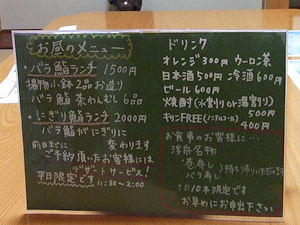 お昼のメニュー
・バラ鮨ランチ 1500円
揚物小鉢2品お造り
バラ鮨 茶わんむし 6品
・にぎり鮨ランチ 2000円
バラ鮨がにぎりに
変わります
前日までに
ご予約頂いたお客様には
デザートサービス!
平日限定です 11:30~2:00
ドリンク
オレンジ300円 ウーロン茶
日本酒500円 冷酒600円
ビール 600円
焼酎(水割りor湯割り)
500円
キリンFREE(ノンアルコール)
400円
お食事のお客様に…
浮舟名物
巻寿し
バラ寿し
持ち帰り
1日10本限定です
お早めにお申出下さい